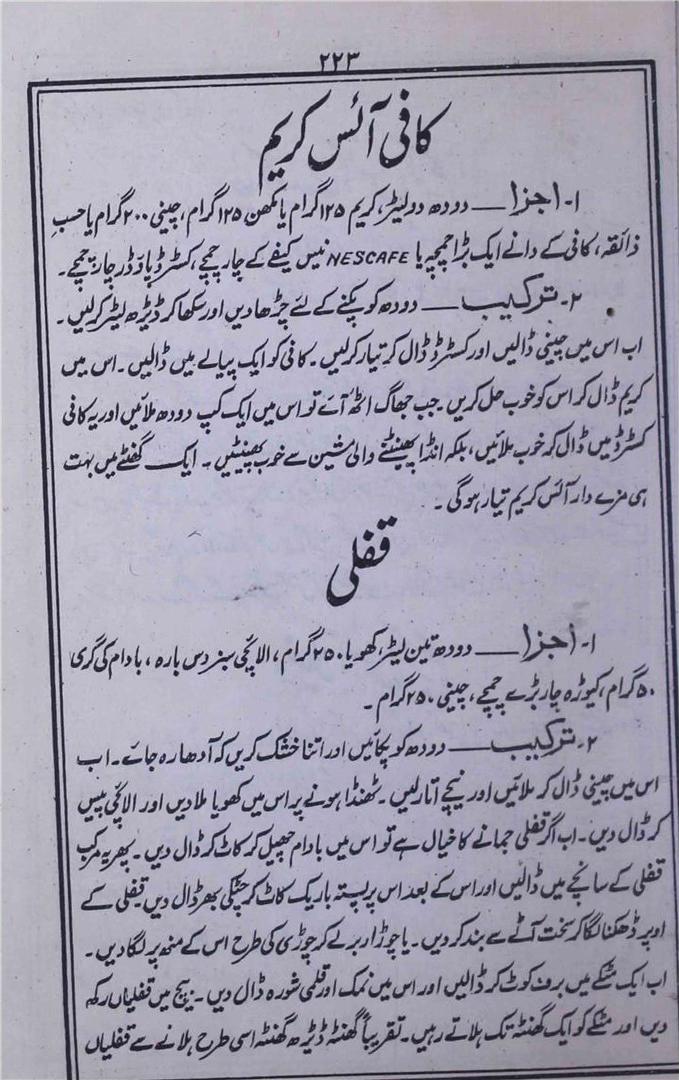 ۲۲۳
کافی آئس کریم
۱۔ اجزا ــــ دودھ دولیٹر، کریم ۱۲۵گرام یا مکھن ۱۲۵گرام، چینی ۲۰۰ گرام یا حسبِ
ذائقہ، کافی کے دانے ایک بڑا چمچہ یا NESCAFE نیس کیفے کے چار چمچے، کسٹرڈ پاؤڈر چار چمچے۔
۲۔ ترکیب ــــ دودھ کو پکنے کے لئے چڑھا دیں اور سکھا کر ڈیڑھ لیٹر کرلیں۔
اب اس میں چینی ڈالیں اور کسٹرڈ ڈال کر تیار کرلیں۔ کافی کو ایک پیالے میں ڈالیں۔ اس میں
کریم ڈال کر اس کو خوب حل کریں۔ جب جھاگ اٹھ آئے تو اس میں ایک کپ دودھ ملائیں اور یہ کافی
کسٹرڈ میں ڈال کر خوب ملائیں، بلکہ انڈا پھینٹنے والی مشین سے خوب پھینٹیں۔ ایک گھنٹے میں بہت
ہی مزے دار آئس کریم تیار ہوگی۔
قفلی
۱۔ اجزا ــــ دودھ تین لیٹر، کھویا ۲۵۰گرام، الائچی سبز دس بارہ، بادام کی گری
۵۰ گرام، کیوڑہ چار بڑے چمچے، چینی ۲۵۰ گرام۔
۲۔ ترکیب ــــ دودھ کو پکائیں اور اتنا خشک کریں کہ آدھا رہ جائے۔ اب
اس میں چینی ڈال کر ملائیں اور نیچے اتار لیں۔ ٹھنڈا ہونے پر اس میں کھویا ملا دیں اور الائچی پیس
کر ڈال دیں۔ اب اگر قفلی جمانے کا خیال ہے تو اس میں بادام چھیل کر کاٹ کر ڈال دیں۔ پھر یہ مرکب
قفلی کے سانچے میں ڈالیں اور اس کے بعد اس پر پستہ باریک کاٹ کر چٹکی بھر ڈال دیں۔ قفلی کے
اوپر ڈھکنا لگا کر سخت آٹے سے بند کر دیں۔ یا چوڑا ربر لے کر چوڑی کی طرح اس کے منھ پر لگا دیں۔
اب ایک مٹکے میں برف کوٹ کر ڈالیں اور اس میں نمک اور قلمی شورہ ڈال دیں۔ بیچ میں قفلیاں رکھ
دیں اور مٹکے کو ایک گھنٹہ تک ہلاتے رہیں۔ تقریباً گھنٹہ ڈیڑھ گھنٹہ اسی طرح ہلانے سے قفلیاں